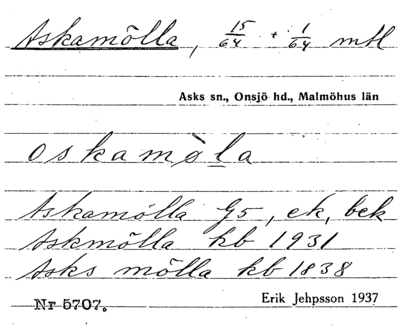 Askamölla, 15/64 + 1/64 mtl
Asks sn., Onsjö hd., Malmöhus län
oskamöla
Askamölla G5, ek, bek
Askmölla kb 1931
Asks mölla kb 1838
Nr 5707.
Erik Jehpsson 1937